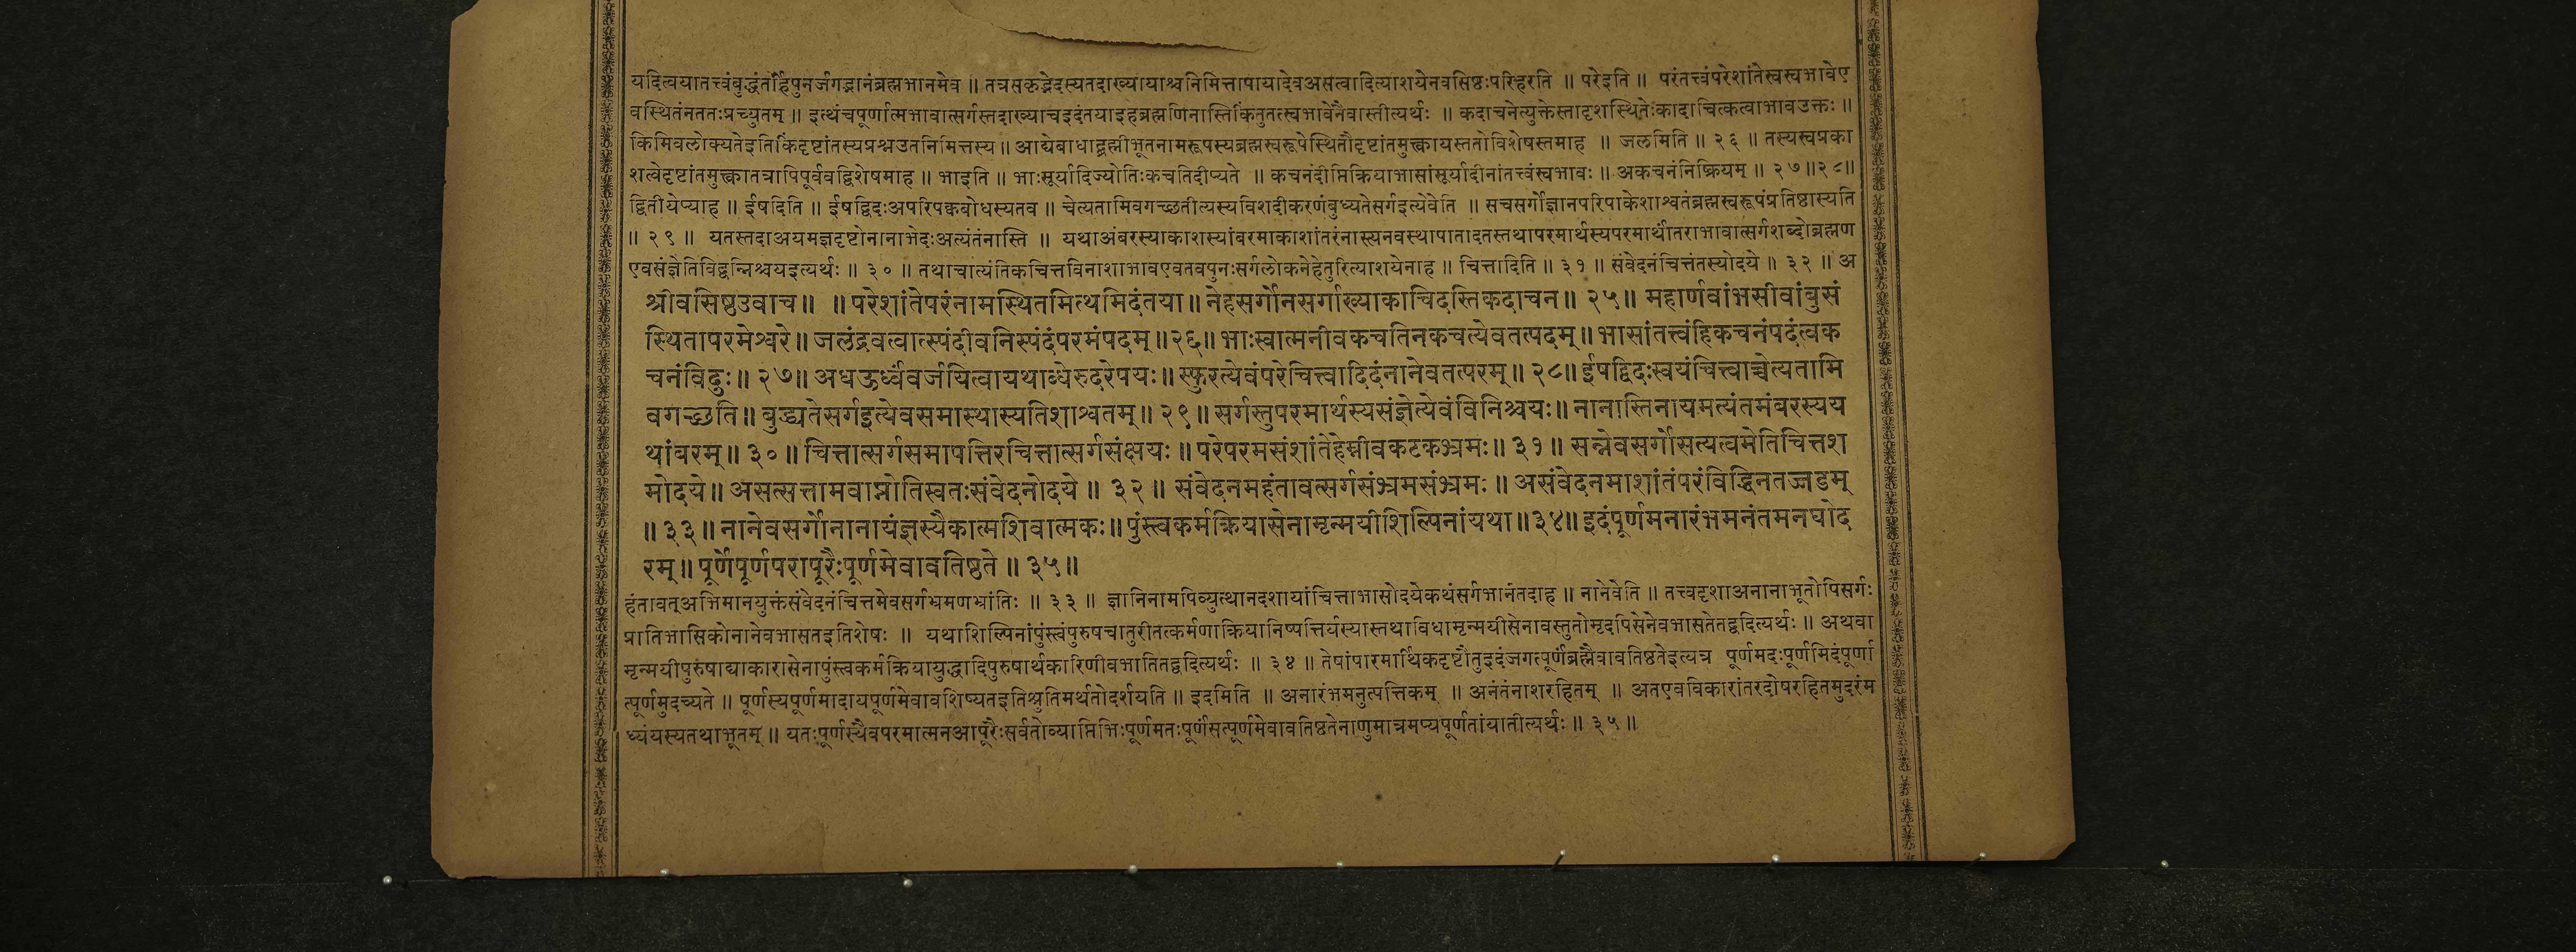 यदित्वयातत्त्वंबुद्धंतर्हिपुनर्जगद्भानंब्रह्मभानमेव ॥ तत्रसकृद्भेदस्यतदाख्यायाश्चनिमित्तापायादेवअसत्वादित्याशयेनवसिष्ठःपरिहरति ॥ परेइति ॥ परंतत्त्वंपरेशांतेस्वस्वभावेए
वस्थितंनततःप्रच्युतम् ॥ इत्थंचपूर्णात्मभावात्सर्गस्तदाख्याचइदंतयाइहब्रह्मणिनास्तिकिंतुतत्स्वभावेनैवास्तीत्यर्थः ॥ कदाचनेत्युक्तेस्तादृशस्थितेःकादाचित्कत्वाभावउक्तः ॥
किमिवलोक्यतेइतिकिंदृष्टांतस्यप्रश्नउतनिमित्तस्य ॥ आद्येबाधाद्ब्रह्मीभूतनामरूपस्यब्रह्मस्वरूपेस्थितौदृष्टांतमुक्त्वायस्ततोविशेषस्तमाह ॥ जलमिति ॥ २६ ॥ तस्यस्वप्रका
शत्वेदृष्टांतमुक्त्वातत्रापिपूर्ववद्विशेषमाह ॥ भाइति ॥ भाःसूर्यादिज्योतिःकचतिदीप्यते ॥ कचनंदीप्तिक्रियाभासांसूर्यादीनांतत्त्वंस्वभावः ॥ अकचनंनिष्क्रियम् ॥ २७॥२८॥
द्वितीयेप्याह ॥ ईषदिति ॥ ईषद्विदःअपरिपक्वबोधस्यतव ॥ चेत्यतामिवगच्छतीत्यस्यविशदीकरणंबुध्यतेसर्गइत्येवेति ॥ सचसर्गोज्ञानपरिपाकेशाश्वतंब्रह्मस्वरूपंप्रतिष्ठास्यति
॥ २९ ॥ यतस्तदाअयमज्ञदृष्टोनानाभेदःअत्यंतंनास्ति ॥ यथाअंबरस्याकाशस्यांबरमाकाशांतरंनास्त्यनवस्थापातादतस्तथापरमार्थस्यपरमार्थांतराभावात्सर्गशब्दोब्रह्मण
एवसंज्ञेतिविद्वन्निश्चयइत्यर्थः ॥ ३० ॥ तथाचात्यंतिकचित्तविनाशाभावएवतवपुनःसर्गलोकनेहेतुरित्याशयेनाह ॥ चित्तादिति ॥ ३१ ॥ संवेदनंचित्तंतस्योदये ॥ ३२ ॥ अ
श्रीवसिष्ठउवाच॥ ॥ परेशांतेपरंनामस्थितमित्थमिदंतया॥ नेहसर्गोनसर्गाख्याकाचिदस्तिकदाचन॥ २५॥ महार्णवांभसीवांबुसं
स्थितापरमेश्वरे॥ जलंद्रवत्वात्स्पंदीवनिस्पंदंपरमंपदम्॥२६॥ भाःस्वात्मनीवकचतिनकचत्येवतत्पदम्॥ भासांतत्त्वंहिकचनंपदंत्वक
चनंविदुः॥ २७॥ अधऊर्ध्वंवर्जयित्वायथाब्धेरुदरेपयः॥ स्फुरत्येवंपरेचित्त्वादिदंनानेवतत्परम्॥ २८॥ ईषद्विदःस्वयंचित्त्वाच्चेत्यतामि
वगच्छति॥ बुद्ध्यतेसर्गइत्येवसमास्थास्यतिशाश्वतम्॥ २९॥ सर्गस्तुपरमार्थस्यसंज्ञेत्येवंविनिश्चयः॥ नानास्तिनायमत्यंतमंबरस्यय
थांबरम्॥ ३०॥ चित्तात्सर्गसमापत्तिरचित्तात्सर्गसंक्षयः॥ परेपरमसंशांतेहेम्नीवकटकभ्रमः॥ ३१॥ सन्नेवसर्गोसत्यत्वमेतिचित्तश
मोदये॥ असत्सत्तामवाप्नोतिस्वतःसंवेदनोदये॥ ३२॥ संवेदनमहंतावत्सर्गसंभ्रमसंभ्रमः॥ असंवेदनमाशांतंपरंविद्धिनतज्जडम्
॥ ३३॥ नानेवसर्गोनानायंज्ञस्यैकात्मशिवात्मकः॥ पुंस्त्वकर्मक्रियासेनामृन्मयीशिल्पिनांयथा॥३४॥ इदंपूर्णमनारंभमनंतमनघोद
रम्॥ पूर्णेपूर्णपरापूरैःपूर्णमेवावतिष्ठते॥ ३५॥
हंतावत्अभिमानयुक्तंसंवेदनंचित्तमेवसर्गभ्रमणभ्रांतिः ॥ ३३ ॥ ज्ञानिनामपिव्युत्थानदशायांचित्ताभासोदयेकथंसर्गभानंतदाह ॥ नानेवेति ॥ तत्त्वदृशाअनानाभूतोपिसर्गः
प्रातिभासिकोनानेवभासतइतिशेषः ॥ यथाशिल्पिनांपुंस्त्वंपुरुषचातुरीतत्कर्मणाक्रियानिष्पत्तिर्यस्यास्तथाविधामृन्मयीसेनावस्तुतोमृदपिसेनेवभासतेतद्वदित्यर्थः ॥ अथवा
मृन्मयीपुरुषाद्याकारासेनापुंस्त्वकर्मक्रियायुद्धादिपुरुषार्थकारिणीवभातितद्वदित्यर्थः ॥ ३४ ॥ तेषांपारमार्थिकदृष्टौतुइदंजगत्पूर्णंब्रह्मैवावतिष्ठतेइत्यत्र पूर्णमदःपूर्णमिदंपूर्णा
त्पूर्णमुदच्यते ॥ पूर्णस्यपूर्णमादायपूर्णमेवावशिष्यतइतिश्रुतिमर्थतोदर्शयति ॥ इदमिति ॥ अनारंभमनुत्पत्तिकम् ॥ अनंतंनाशरहितम् ॥ अतएवविकारांतरदोषरहितमुदरंम
ध्यंयस्यतथाभूतम् ॥ यतःपूर्णस्यैवपरमात्मनआपूरैःसर्वतोव्याप्तिभिःपूर्णमतःपूर्णंसत्पूर्णमेवावतिष्ठतेनाणुमात्रमप्यपूर्णतांयातीत्यर्थः ॥ ३५ ॥